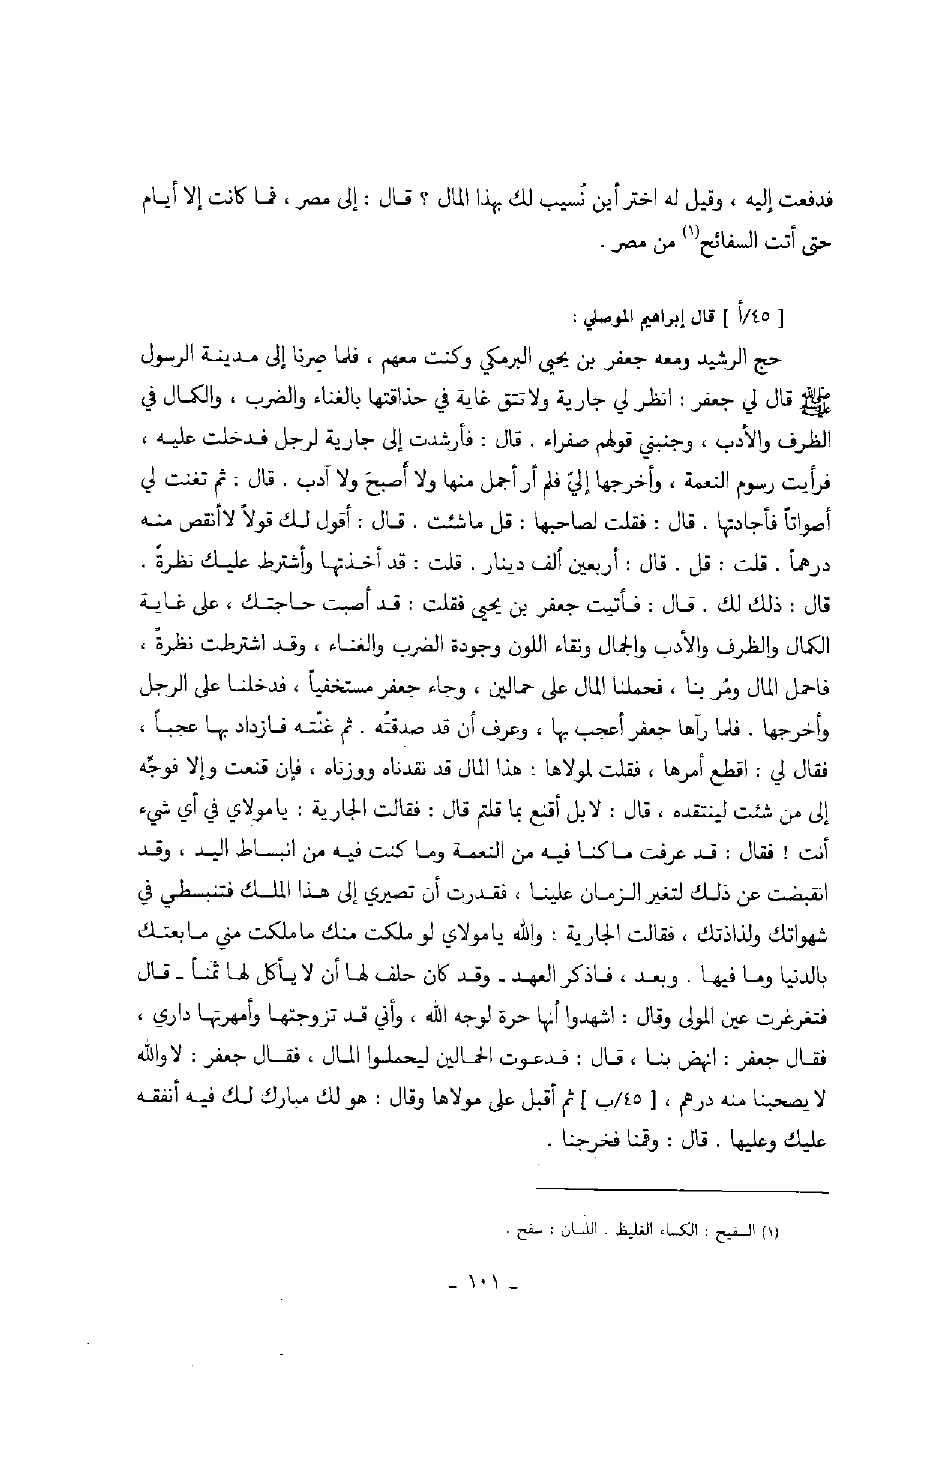 فدفعت إليه ، وقيل له اختر أين نُسيب لك بهذا المال ؟ قال : إلى مصر ، فما كانت إلا أيام
حتى أتت السفائح(١) من مصر .
[ ٤٥/أ ] قال إبراهيم الموصلي :
حج الرشيد ومعه جعفر بن يحيى البرمكي وكنت معهم ، فلما صِرنا إلى مدينة الرسول
ﷺ قال لي جعفر : انظر لي جارية ولا تبق غاية في حذاقتها بالغناء والضرب ، والكمال في
الظرف والأدب ، وجنبني قولهم صفراء . قال : فأرشدت إلى جارية لرجل فدخلت عليه ،
فرأيت رسوم النعمة ، وأخرجها إليّ فلم أر أجمل منها ولا أصبحَ ولا آدب . قال : ثم تغنت لي
أصواتاً فأجادتها . قال : فقلت لصاحبها : قل ماشئت . قال : أقول لك قولاً لاأنقص منه
درهماً . قلت : قل . قال : أربعين ألف دينار . قلت : قد أخذتها وأشترط عليك نظرةً .
قال : ذلك لك . قال : فأتيت جعفر بن يحيى فقلت : قد أصبت حاجتك ، على غاية
الكمال والظرف والأدب والجمال ونقاء اللون وجودة الضرب والغناء ، وقد اشترطت نظرةً ،
فاحمل المال ومُر بنا ، فحملنا المال على حمالين ، وجاء جعفر مستخفياً ، فدخلنا على الرجل
وأخرجها . فلما رآها جعفر أعجب بها ، وعرف أن قد صدقتُه . ثم غنّته فازداد بها عجباً ،
فقال لي : اقطع أمرها ، فقلت لمولاها : هذا المال قد نقدناه ووزناه ، فإن قنعت وإلا فوجّه
إلى من شئت لينتقده ، قال : لابل أقنع بما قلتم قال : فقالت الجارية : يامولاي في أي شيء
أنت ! فقال : قد عرفت ماكنا فيه من النعمة وما كنت فيه من انبساط اليد ، وقد
انقبضت عن ذلك لتغير الزمان علينا ، فقدرت أن تصيري إلى هذا الملك فتنبسطي في
شهواتك ولذاذتك ، فقالت الجارية : والله يامولاي لو ملكت منك ماملكت مني مابعتك
بالدنيا وما فيها . وبعد ، فاذكر العهد - وقد كان حلف لها أن لا يأكل لها ثمناً - قال
فتغرغرت عين المولى وقال : اشهدوا أنها حرة لوجه الله ، وأني قد تزوجتها وأمهرتها داري ،
فقال جعفر : انهض بنا ، قال : فدعوت الحمالين ليحملوا المال ، فقال جعفر : لاوالله
لا يصحبنا منه درهم ، [ ٤٥/ب ] ثم أقبل على مولاها وقال : هو لك مبارك لك فيه أنفقه
عليك وعليها . قال : وقمنا فخرجنا .
(١) السفيح : الكساء الغليظ . اللسان : سفح .
- ١٠١ -